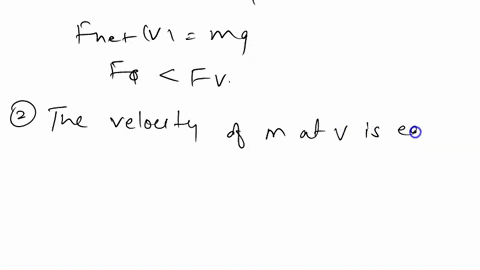 Fnet (V) = mg
Fφ < Fv.
② The velocity of m at v is eq